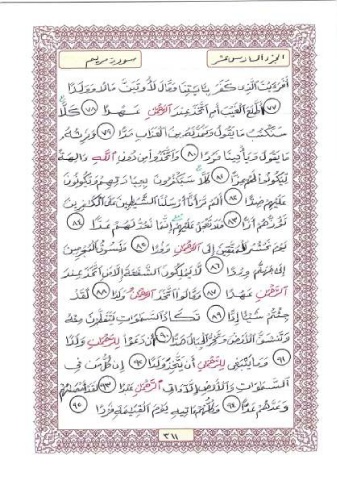 الجزء السادس عشر
سورة مريم
أفرءيت الذى كفر بـٔايتنا وقال لأوتين مالا وولدا
٧٧ أطلع الغيب أم اتخذ عند الرحمن عهدا ٧٨ كلا
سنكتب ما يقول ونمد له من العذاب مدا ٧٩ ونرثه
ما يقول ويأتينا فردا ٨٠ واتخذوا من دون الله ءالهة
ليكونوا لهم عزا ٨١ كلا سيكفرون بعبادتهم ويكونون
عليهم ضدا ٨٢ ألم تر أنا أرسلنا الشيطين على الكفرين
تؤزهم أزا ٨٣ فلا تعجل عليهم إنما نعد لهم عدا ٨٤
يوم نحشر المتقين إلى الرحمن وفدا ٨٥ ونسوق المجرمين
إلى جهنم وردا ٨٦ لا يملكون الشفعة إلا من اتخذ عند
الرحمن عهدا ٨٧ وقالوا اتخذ الرحمن ولدا ٨٨ لقد
جئتم شيـٔا إدا ٨٩ تكاد السموات يتفطرن منه
وتنشق الأرض وتخر الجبال هدا ٩٠ أن دعوا للرحمن ولدا
٩١ وما ينبغى للرحمن أن يتخذ ولدا ٩٢ إن كل من فى
السموات والأرض إلا ءاتى الرحمن عبدا ٩٣ لقد أحصىهم
وعدهم عدا ٩٤ وكلهم ءاتيه يوم القيمة فردا ٩٥
٣١١